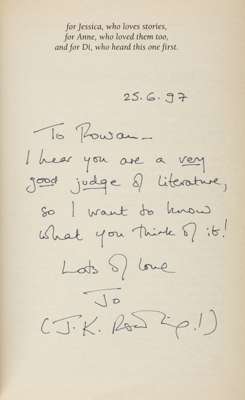 for Jessica, who loves stories,
for Anne, who loved them too,
and for Di, who heard this one first.
25.6.97
To Rowan –
I hear you are a very
good judge of literature,
so I want to know
what you think of it!
Lots of love
Jo
(J.K. Rowling!)